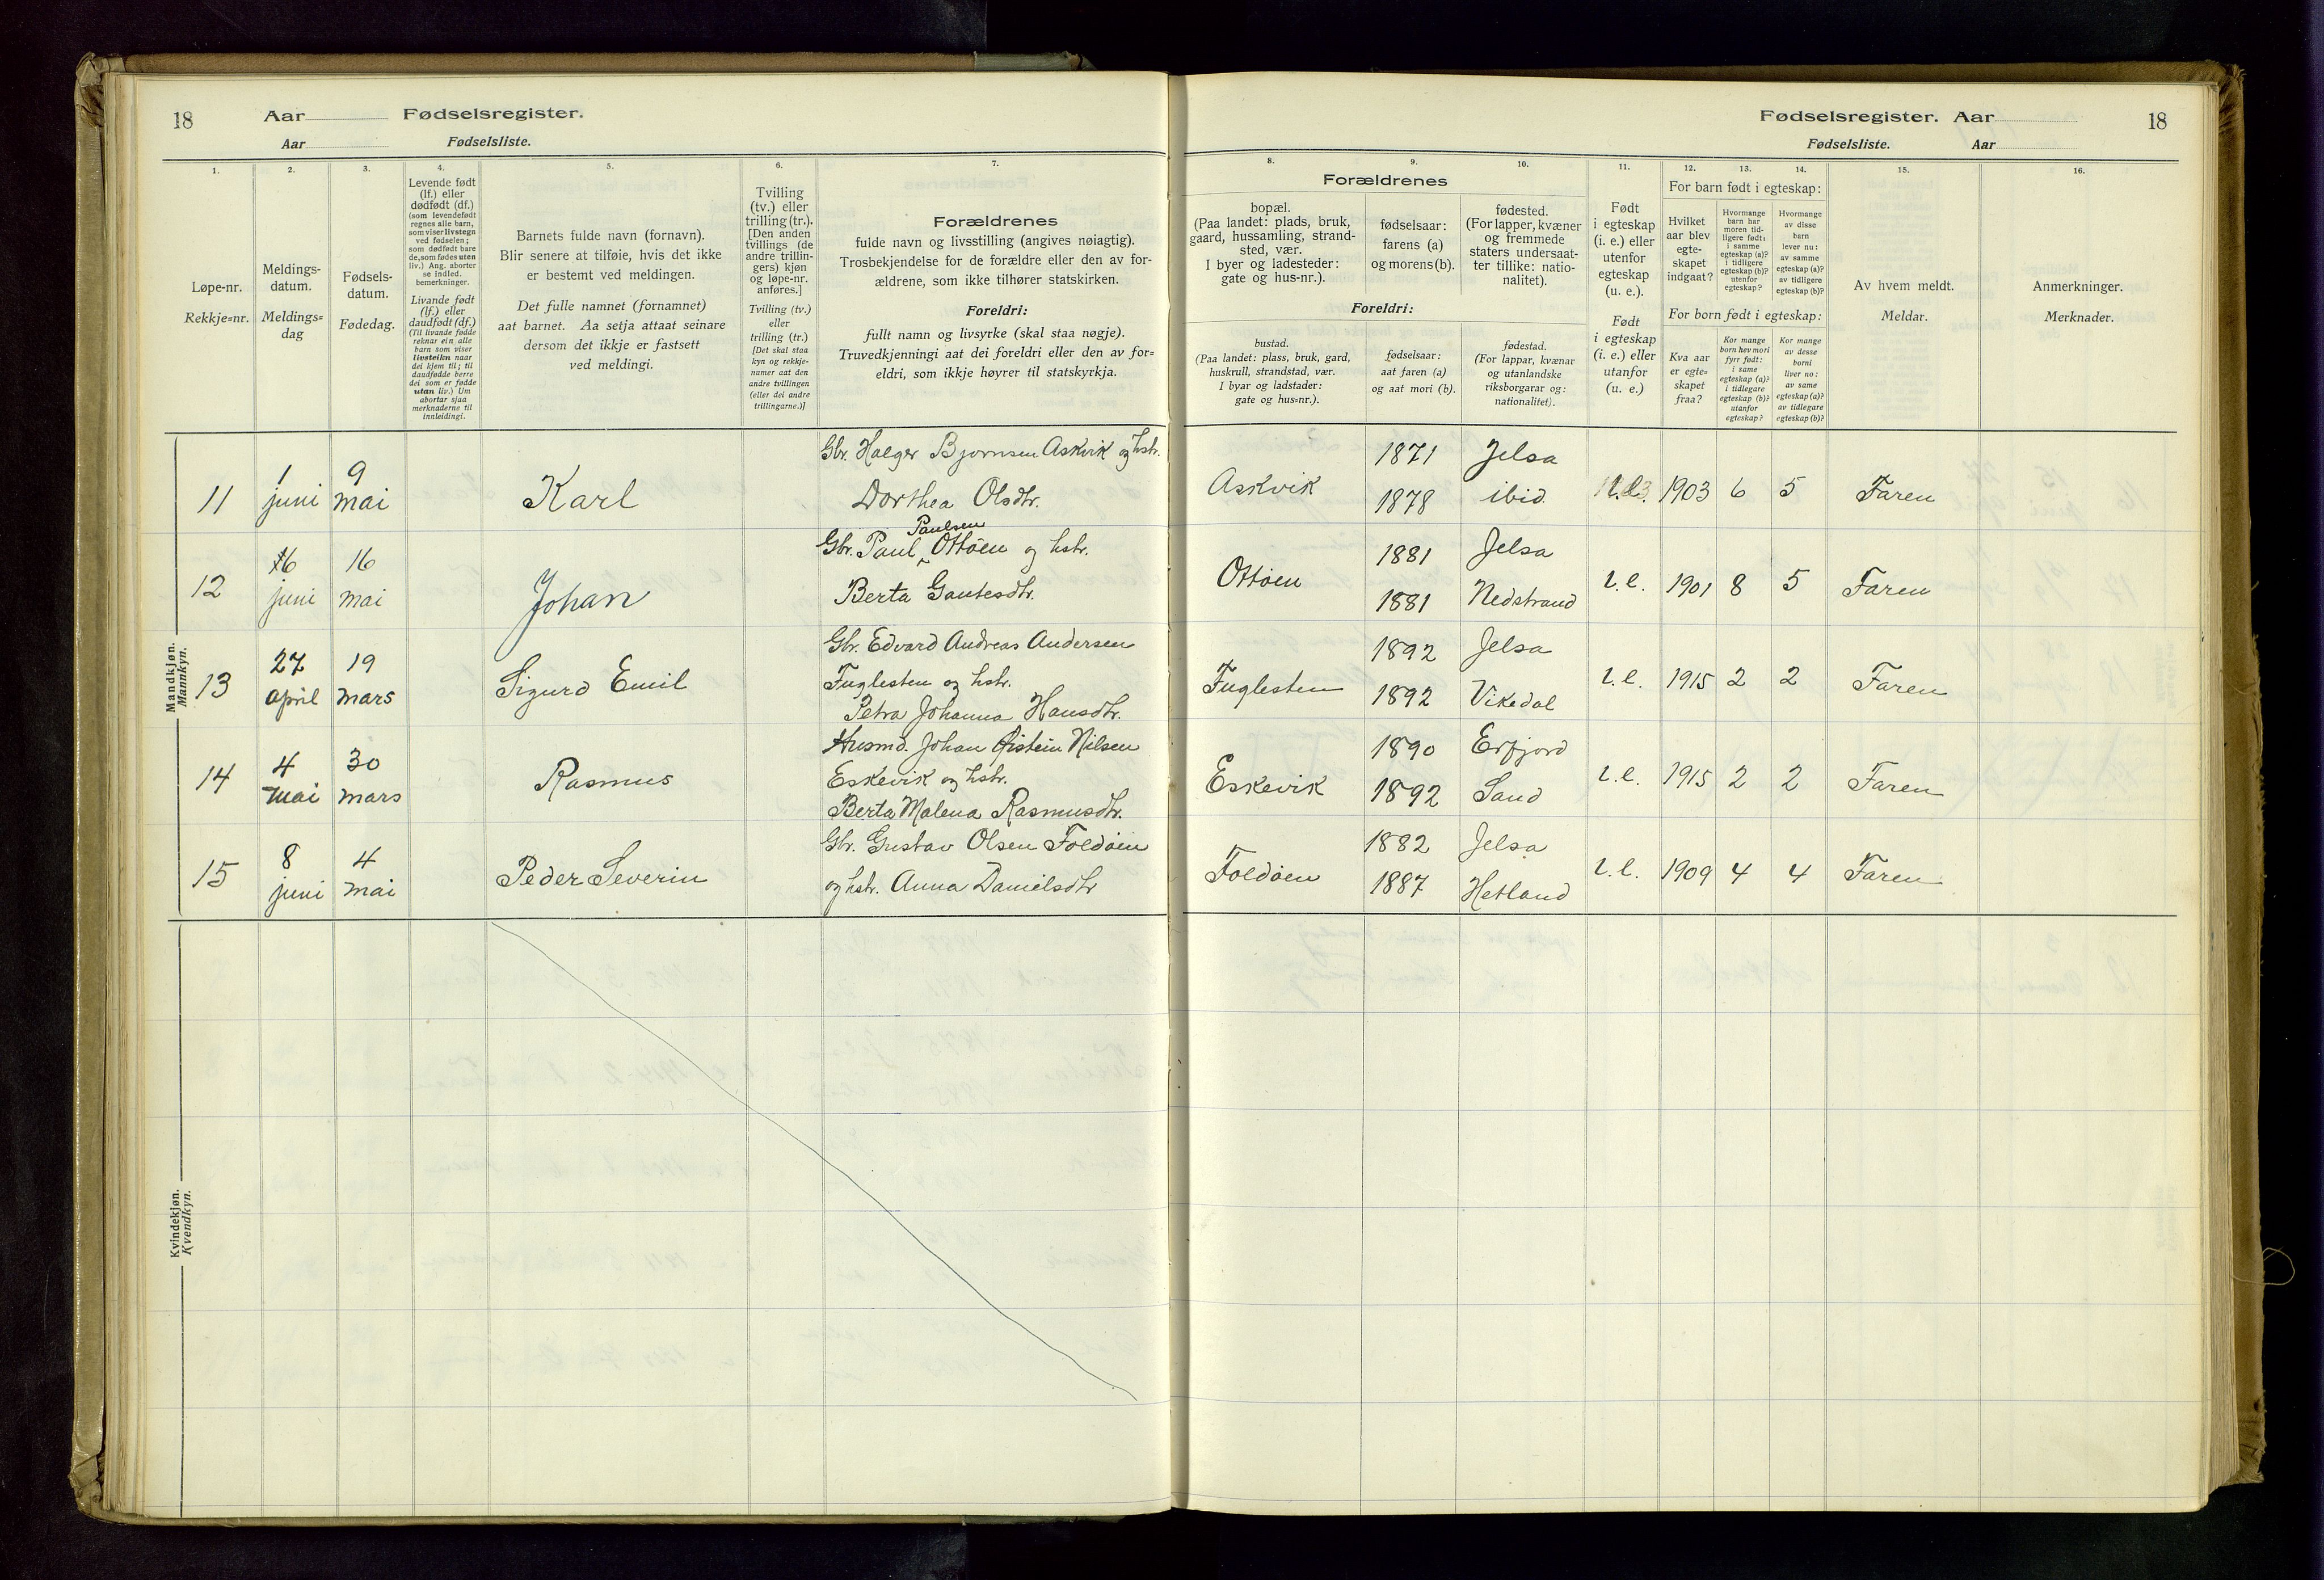 18 Aar Fødselsregister.
Aar Fødselsliste.
1. 2. 3. 4. 5. 6. 7.
Løpe-nr.
Rekkje=nr.
Meldings-
datum.
Meldings=
dag
Fødsels-
datum.
Fødedag.
Levende født
(lf.) eller
dødfødt (df.)
(som levendefødt
regnes alle barn,
som viser livstegn
ved fødselen;
som dødfødt bare
de, som fødes uten
liv.) Ang. aborter
se indled.
bemerkninger.
Livande født
(lf.) eller
daudfødt (df.)
(Til livande fødde
reknar ein alle
barn som viser
livsteikn naar
dei kjem til; til
daudfødde berre
dei som er fødde
utan liv.) Um
abortar sjaa
merknaderne til
innleidingi.
Barnets fulde navn (fornavn).
Blir senere at tilføie, hvis det ikke
er bestemt ved meldingen.
Det fulle namnet (fornamnet)
aat barnet. Aa setja attaat seinare
dersom det ikkje er fastsett
ved meldingi.
Tvilling
(tv.) eller
trilling (tr.).
[Den anden
tvillings (de
andre trillin-
gers) kjøn
og løpe-nr.
anføres.]
Tvilling (tv.)
eller
trilling (tr.)
[Det skal staa
kyn og rekkje-
numer aat den
andre tvillingen
(eller dei andre
trillingarne.)]
Forældrenes
fulde navn og livsstilling (angives nøiagtig).
Trosbekjendelse for de forældre eller den av for-
ældrene, som ikke tilhører statskirken.
Foreldri:
fullt namn og livsyrke (skal staa nøgje).
Truvedkjenningi aat dei foreldri eller den av for=
eldri, som ikkje høyrer til statskyrkja.
Mandkjøn.
Mannkyn.
11 1 juni 9 mai Karl
Gbr. Halger Bjørnsen Askvik og hstr.
Dorthea Olsdtr.
12 16 juni 16 mai Johan
Paulsen
Gbr. Paul Ottøen og hstr.
Berta Gautesdtr.
13 27 april 19 mars Sigurd Emil
Gbr. Edvard Andreas Andersen
Fuglesten og hstr.
Petra Johanna Hansdtr.
14 4 mai 30 mars Rasmus
Husmd. Johan Øistein Nilsen
Eskevik og hstr.
Berta Malena Rasmusdtr.
15 8 juni 4 mai Peder Severin
Gbr. Gustav Olsen Foldøen
og hstr. Anna Danielsdtr
Kvindekjøn.
Kvendkyn.
Fødselsregister. Aar 18
Fødselsliste. Aar
8. 9. 10. 11. 12. 13. 14. 15. 16.
Forældrenes
bopæl.
(Paa landet: plads, bruk,
gaard, hussamling, strand-
sted, vær.
I byer og ladesteder:
gate og hus-nr.).
fødselsaar:
farens (a)
og morens (b).
fødested.
(For lapper, kvæner
og fremmede
staters undersaat-
ter tillike: natio-
nalitet).
Foreldri:
bustad.
(Paa landet: plass, bruk, gard,
huskrull, strandstad, vær.
I byar og ladstader:
gate og hus=nr.).
fødselsaar:
aat faren (a)
og aat mori (b).
fødestad.
(For lappar, kvænar
og utanlandske
riksborgarar og:
nationalitet).
Født
i egteskap
(i. e.) eller
utenfor
egteskap
(u. e.).
Født
i egteskap
(i. e.) eller
utanfor
egteskap
(u. e.)
For barn født i egteskap:
Hvilket
aar blev
egte-
skapet
indgaat?
Hvormange
barn har
moren tid-
ligere født:
i samme
egteskap (a)?
i tidligere
egteskap (b)?
utenfor
egteskap?
Hvormange
av disse
barn
lever nu:
av samme
egteskap (a)?
av tidligere
egteskap (b)?
For born født i egteskap:
Kva aar
er egte=
skapet
fraa?
Kor mange
born hev mori
fyrr født:
i same
egteskap (a)?
i tidlegare
egteskap (b)?
utanfor
egteskap?
Kor mange
av desse
borni
liver no:
av same
egteskap (a)?
av tidlegare
egteskap (b)?
Av hvem meldt.
Meldar.
Anmerkninger.
Merknader.
Askvik 1871 Jelsa
1878 ibid. i.e. 1903 6 5 Faren
Ottøen 1881 Jelsa
1881 Nedstrand i.e. 1901 8 5 Faren
Fuglesten 1892 Jelsa
1892 Vikedal i.e. 1915 2 2 Faren
Eskevik 1890 Erfjord
1892 Sand i.e. 1915 2 2 Faren
Foldøen 1882 Jelsa
1887 Hetland i.e. 1909 4 4 Faren